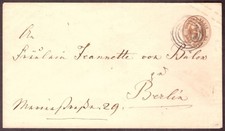 An
Fräulein Jeannette von Bülow
zu
Berlin
29.